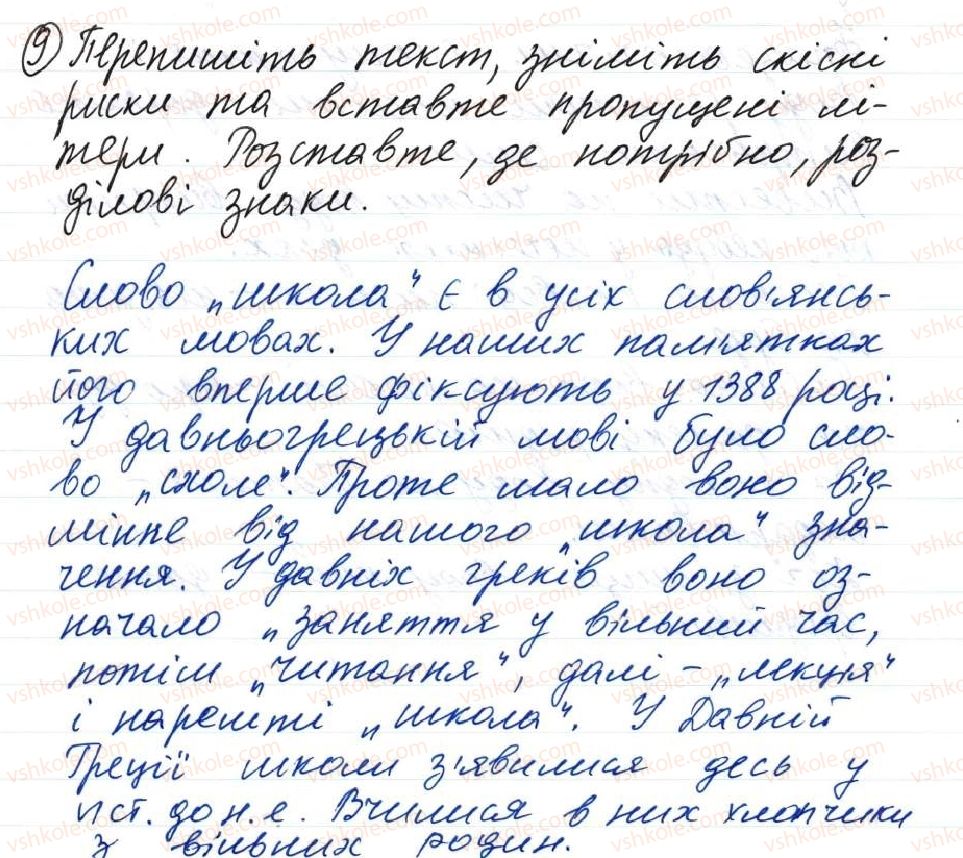 9 Перепишіть текст, зніміть скісні
риски та вставте пропущені лі-
тери. Розставте, де потрібно, роз-
ділові знаки.
Слово „школа" є в усіх слов'янсь-
ких мовах. У наших пам'ятках
його вперше фіксують у 1388 році.
У давньогрецькій мові було сло-
во „схоле". Проте мало воно від-
мінне від нашого „школа" зна-
чення. У давніх греків воно оз-
начало „заняття у вільний час,
потім „читання", далі – „лекція"
і нарешті „школа". У Давній
Греції школи з'явилися десь у
ст. до н.е. Вчилися в них хлопчики
з вільних родин.